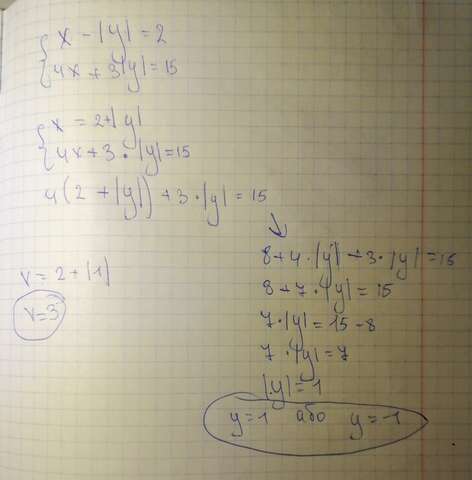 x - |y| = 2
4x + 3|y| = 15
x = 2+|y|
4x + 3 · |y| = 15
4(2 + |y|) + 3 · |y| = 15
8 + 4 · |y| + 3 · |y| = 15
8 + 7 · |y| = 15
7 · |y| = 15 - 8
7 · |y| = 7
|y| = 1
y = 1 або y = -1
x = 2 + |1|
x = 3